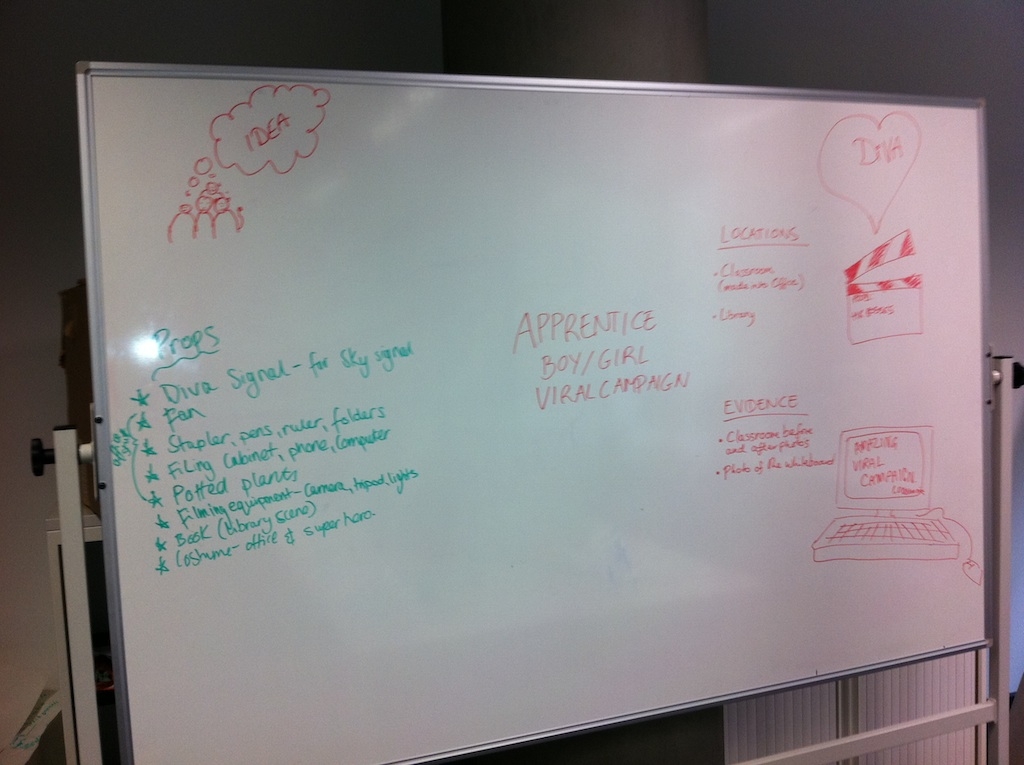 IDEA
Props
Diva Signal - for sky signal
Fan
Stapler, pens, ruler, folders
Filing Cabinet, phone, computer
Potted plants
Filming equipment - camera, tripod, lights
Book (library scene)
Costume - office & superhero
office
APPRENTICE
BOY/GIRL
VIRAL CAMPAIGN
DIVA
LOCATIONS
• Classroom
(made into Office)
• Library
EVIDENCE
• Classroom before
and after photos
• Photo of the whiteboard
AMAZING
VIRAL
CAMPAIGN